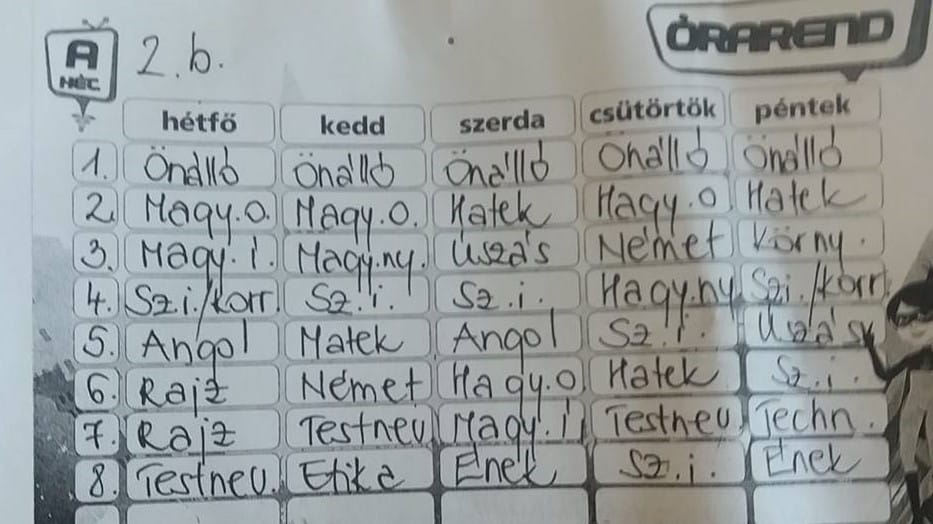 A
HÉT
2.b.
ÓRAREND
hétfő kedd szerda csütörtök péntek
1. Önálló Önálló Önálló Önálló Önálló
2. Magy.o. Magy.o. Matek Magy.o Matek
3. Magy.i. Magy.ny. Úszás Német Körny.
4. Sz.i./korr. Sz.i. Sz.i. Magy.ny Szi./korr.
5. Angol Matek Angol Sz.i. Úszás
6. Rajz Német Magy.o Matek Sz.i.
7. Rajz Testnev. Magy.i Testnev. Techn.
8. Testnev. Etika Ének Sz.i. Ének